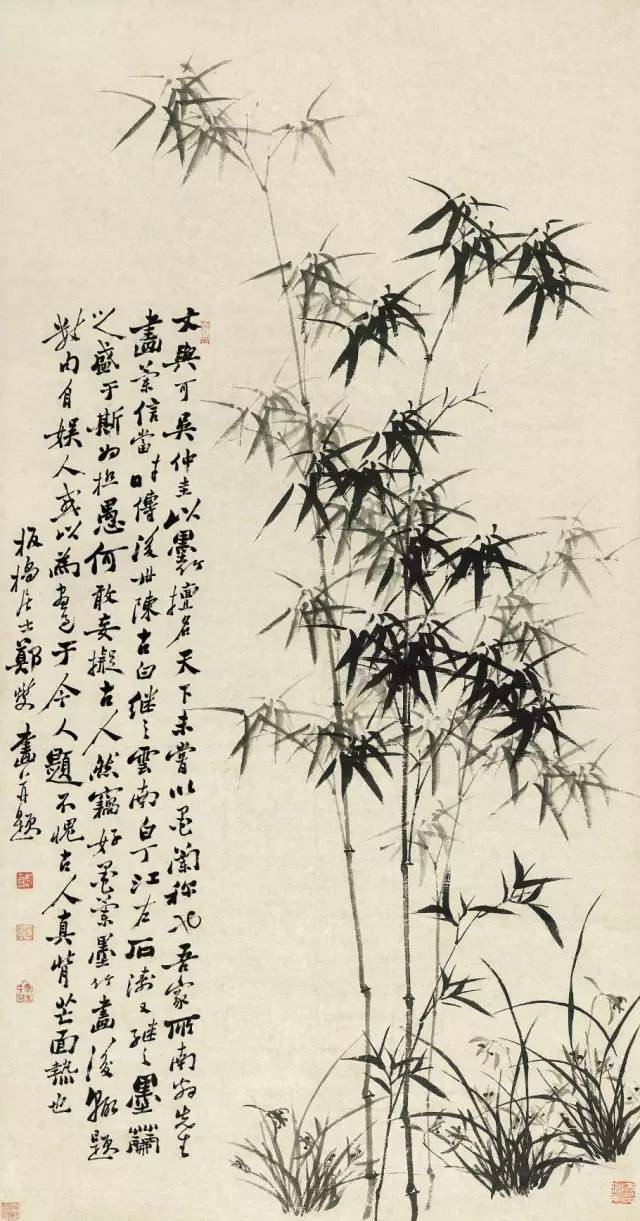 文與可吳仲圭以墨竹擅名天下未嘗以墨蘭稱也吾家所南翁先生
畫蘭信當時傳後世陳古白繼之雲南白丁江左石濤又繼之墨蘭
之盛于斯為極愚何敢妄擬古人然竊好墨蘭墨竹畫後輒題
數內自娛人或以為畫過于今人題不愧古人真背芒面熱也
板橋居士鄭燮畫并題